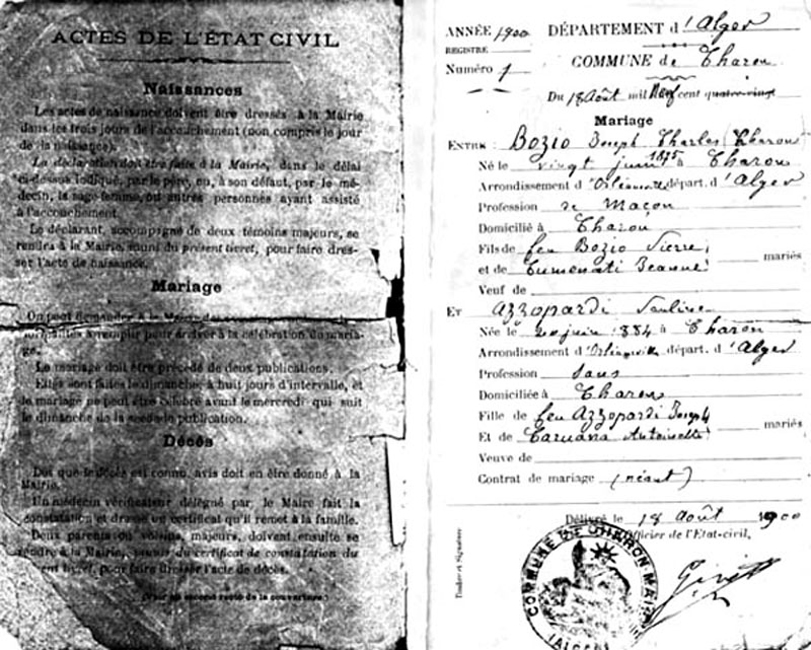 ACTES DE L'ÉTAT CIVIL
Naissances
Les actes de naissance doivent être dressés à la Mairie
dans les trois jours de l'accouchement (non compris le jour
de la naissance).
La déclaration doit être faite à la Mairie, dans le délai
ci-dessus indiqué, par le père, ou, à son défaut, par le mé-
decin, la sage-femme, ou autres personnes ayant assisté
à l'accouchement.
Le déclarant, accompagné de deux témoins majeurs, se
rendra à la Mairie, muni du présent livret, pour faire dres-
ser l'acte de naissance.
Mariage
On peut demander à la Mairie
formalités à remplir pour arriver à la célébration du maria-
ge.
Le mariage doit être précédé de deux publications.
Elles sont faites le dimanche, à huit jours d'intervalle, et
le mariage ne peut être célébré avant le mercredi qui suit
le dimanche de la seconde publication.
Décès
Dès que le décès est connu, avis doit en être donné à la
Mairie.
Un médecin vérificateur délégué par le Maire fait la
constatation et dresse un certificat qu'il remet à la famille.
Deux parents ou voisins, majeurs, doivent ensuite se
rendre à la Mairie, munis du certificat de constatation du
ent livret, pour faire dresser l'acte de décès.
ANNÉE 1900 DÉPARTEMENT d'Alger
REGISTRE
Numéro 7 COMMUNE de Charon
Du 18 Août mil Neuf cent quatre-vingt
Mariage
ENTRE : Bozio Joseph Charles (Charon)
Né le vingt juin 1875 à Charon
Arrondissement d'Orléansville départ. d'Alger
Profession de Maçon
Domicilié à Charon
Fils de feu Bozio Pierre
et de Tumonati Jeanne mariés
Veuf de
ET Azzopardi Pauline
Née le 20 juin 1884 à Charon
Arrondissement d'Orléansville départ. d'Alger
Profession Sans
Domiciliée à Charon
Fille de feu Azzopardi Joseph
Et de Caruana Antoinette mariés
Veuve de
Contrat de mariage (néant)
Délivré le 18 Août 1900
Officier de l'Etat-civil,
Timbre et Signature
COMMUNE DE CHERON MAIRIE
(ALGER)